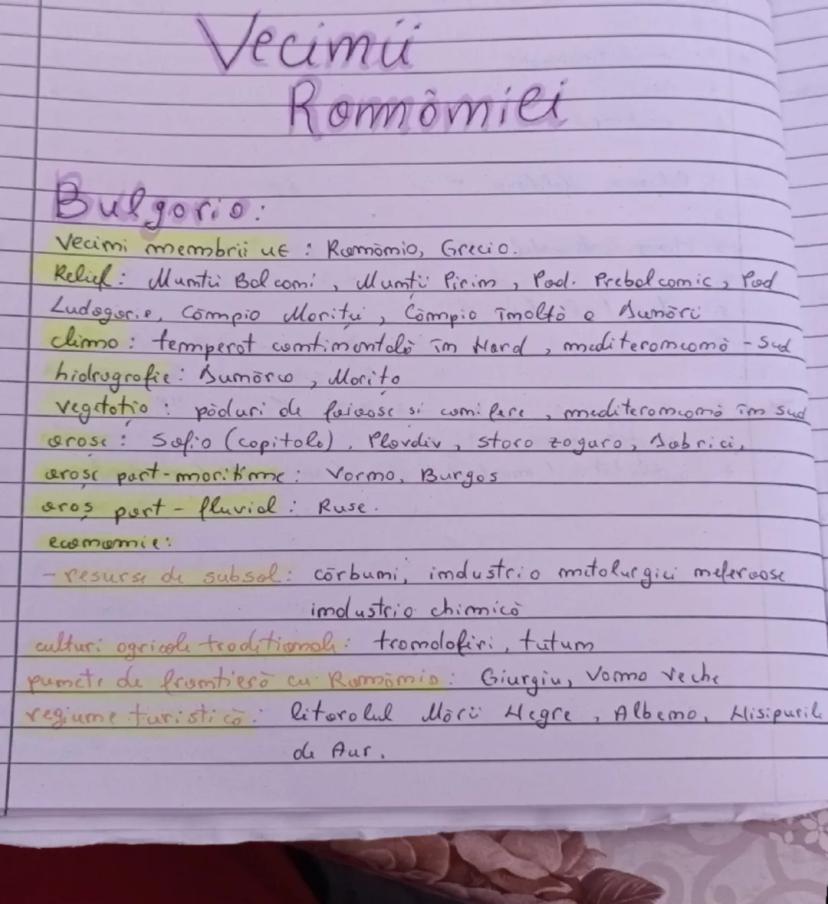 Vecinii
României
Bulgaria:
Vecini membrii UE: România, Grecia.
Relief: Munții Balcani, Munții Pirin, Pod. Prebalcanic, Pod
Ludogorie, Câmpia Mariței, Câmpia înaltă a Dunării
clima: temperat continentală în Nord, mediteraneană - Sud
hidrografie: Dunărea, Marița
vegetația: păduri de foioase si conifere, mediteraneană în sud
orase: Sofia (capitala), Plovdiv, stara zagara, Dobrici,
orașe port-maritime: Varna, Burgas
oraș port - fluvial: Ruse.
economie:
- resurse de subsol: cărbuni, industria metalurgiei neferoase
industria chimică
culturi agricole tradiționale: trandafiri, tutun
puncte de frontieră cu România: Giurgiu, Vama Veche
regiune turistică: litoralul Mării Negre, Albena, Nisipurile
de Aur.